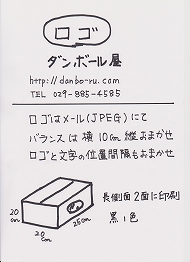 ロゴ
ダンボール屋
http://danbo-ru.com
TEL 029-885-4585
ロゴはメール(JPEG)にて
バランスは横10cm縦おまかせ
ロゴと文字の位置間隔もおまかせ
長側面2面に印刷
黒1色
20cm
20cm
25cm